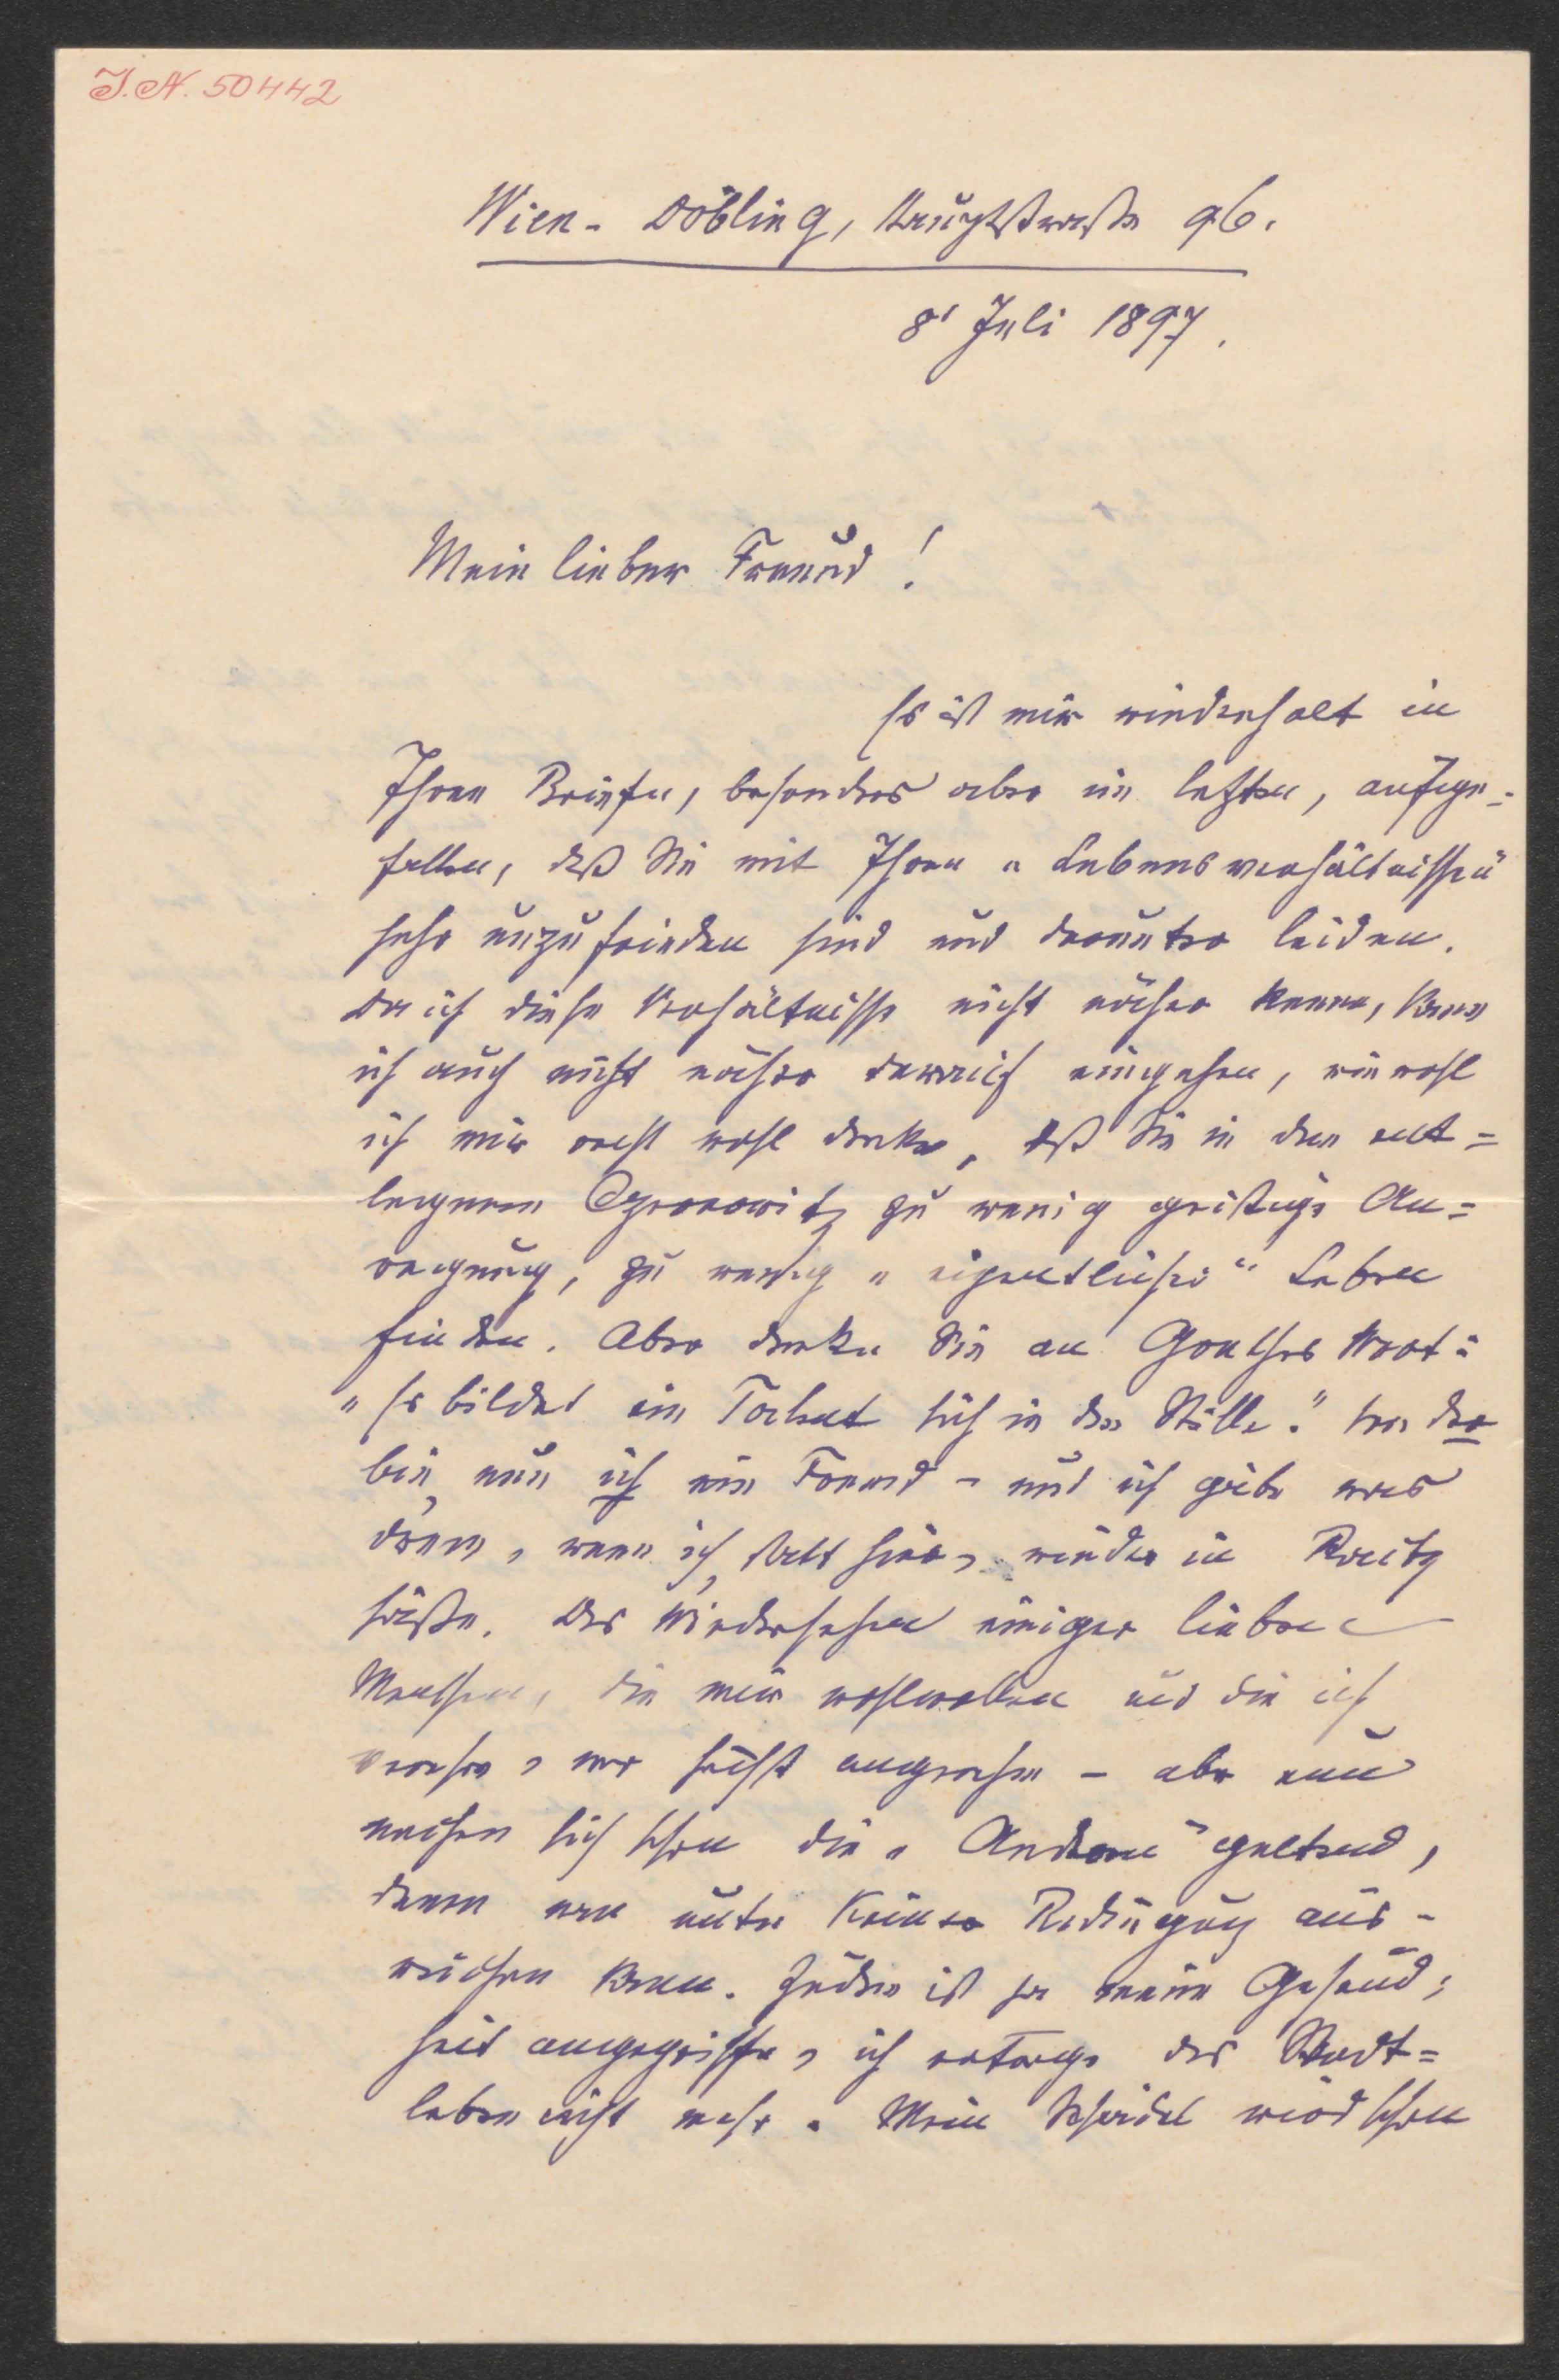 J. N. 50442
Wien-Döbling, Hauptstrasse 96.
8' Juli 1897.
Mein lieber Freund!
Es ist mir wiederholt in
Ihren Briefen, besonders aber im letzten, aufge-
fallen, daß Sie mit Ihren „Lebensverhältnissen“
sehr unzufrieden sind und darunter leiden.
Da ich diese Verhältnisse nicht näher kenne, kann
ich auch nicht näher darauf eingehen, wiewohl
ich mir recht wohl denke, daß Sie in dem ent=
legenen Czernowitz zu wenig geistige An=
regung, zu wenig „eigentliches“ Leben
finden. Aber denken Sie an Goethes Wort:
„Es bildet ein Talent sich in der Stille.“ Von der
bin nun ich ein Freund – und ich gäbe was
drum, wenn ich, statt hier, wieder in Raitz
säße. Das Wiedersehen einiger lieben
Menschen, die mir wohlwollen und die ich
verehre, war höchst angenehm – aber nun
machen sich schon die „Anderen“ geltend,
denen man unter keiner Bedingung aus-
weichen kann. Zudem ist ja meine Gesund-
heit angegriffen, ich ertrage das Stadt=
leben nicht mehr. Mein Schädel wird schon